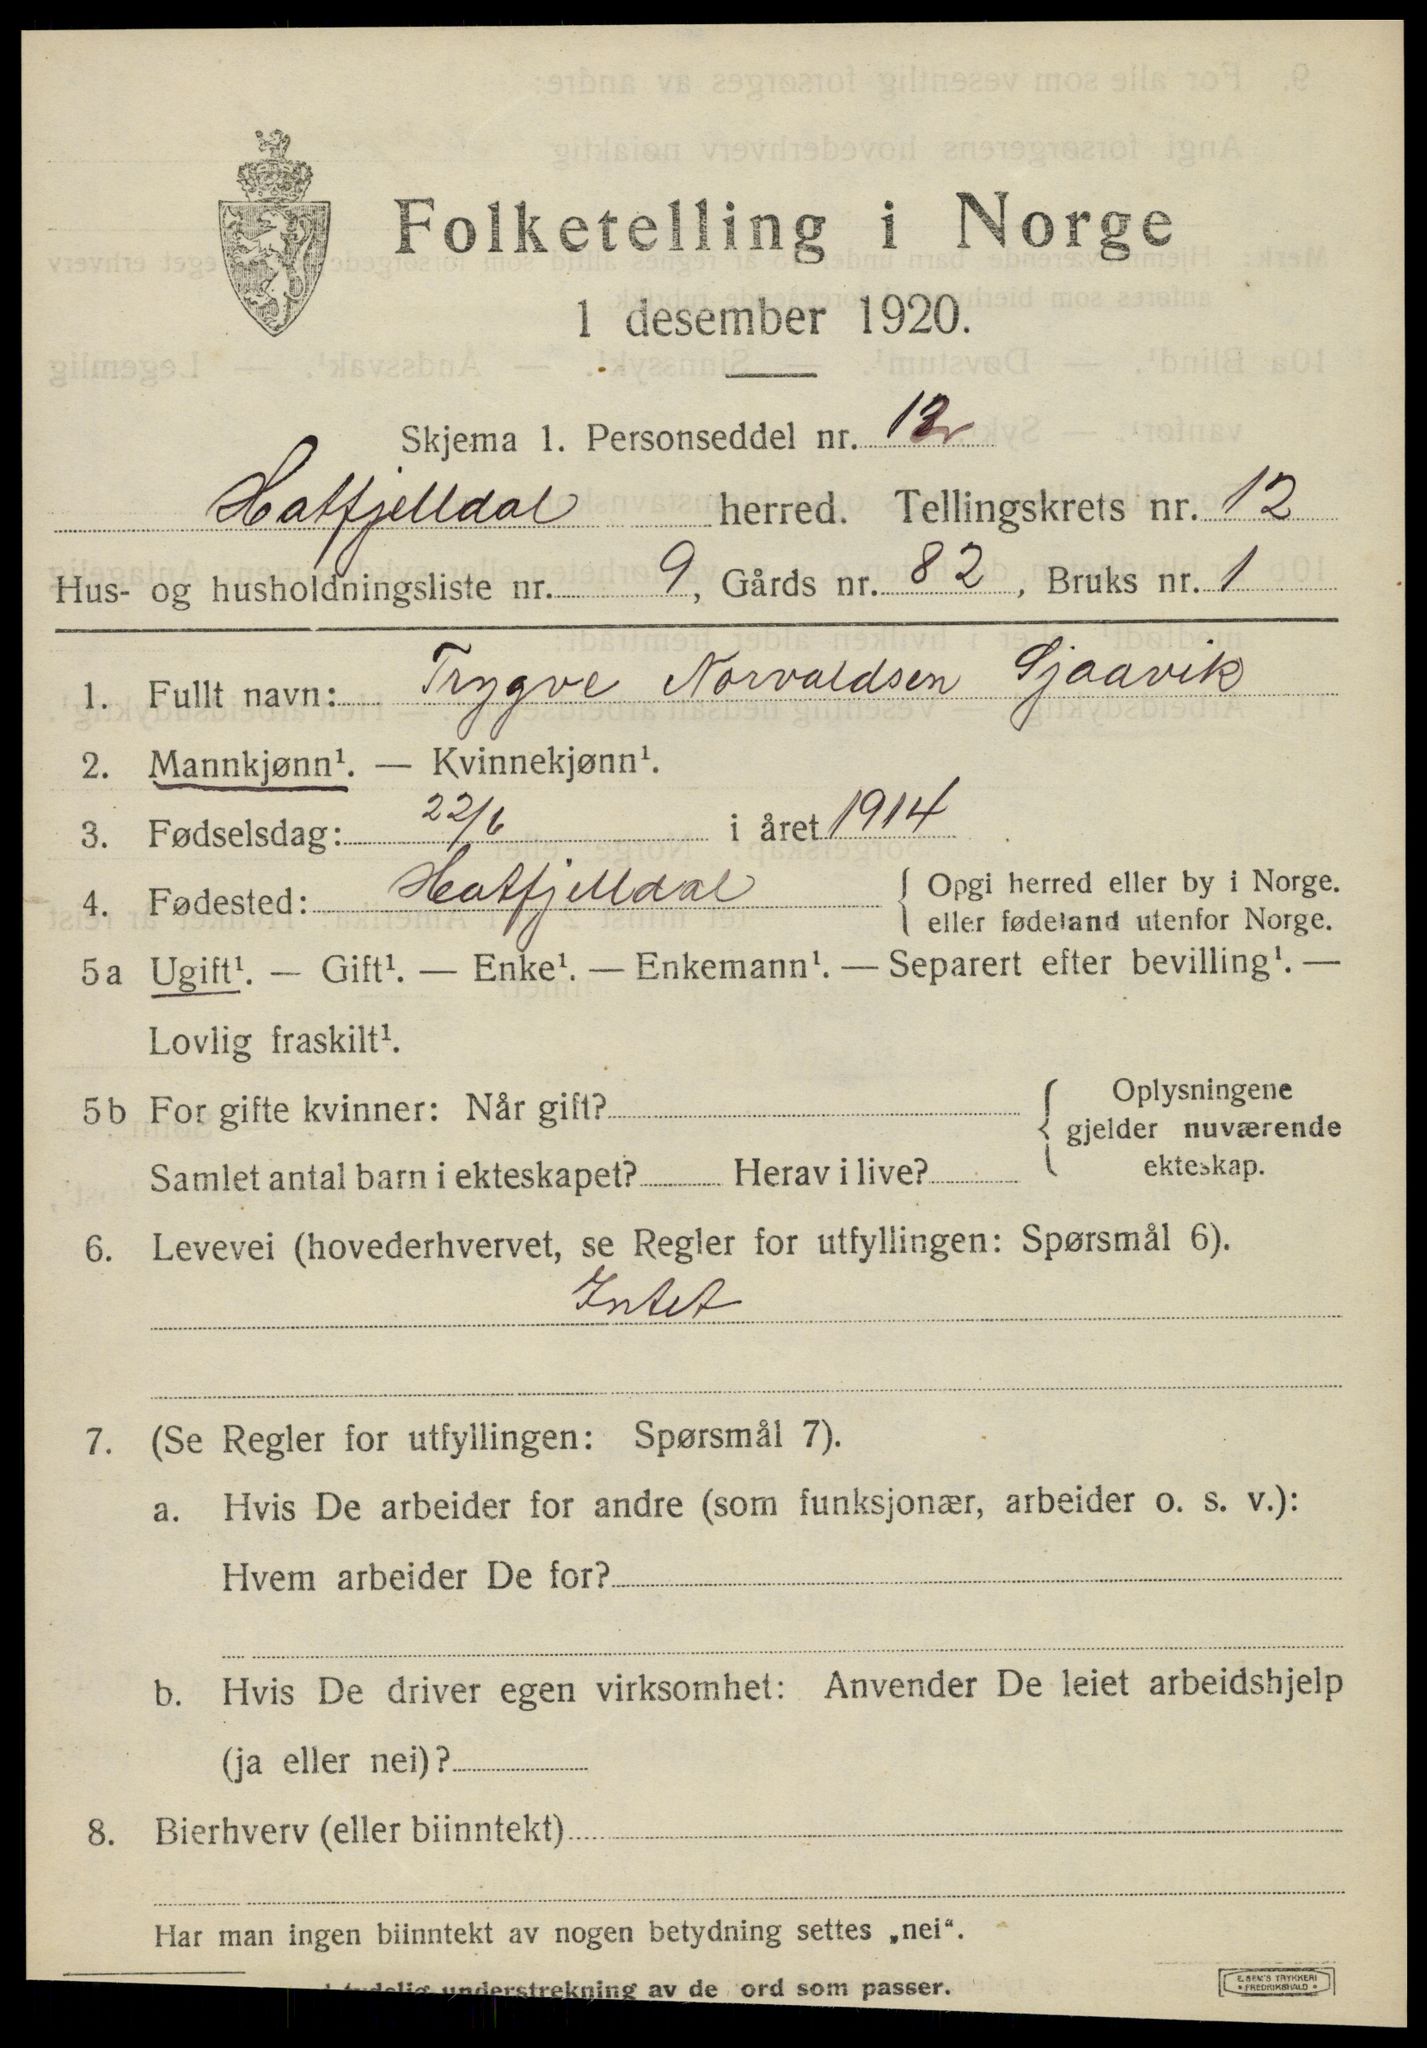 Folketelling i Norge
1 desember 1920.
Skjema 1. Personseddel nr. 12
Hatfjelldal herred. Tellingskrets nr. 12
Hus- og husholdningsliste nr. 9, Gårds nr. 82, Bruks nr. 1
1. Fullt navn: Trygve Norvaldsen Sjaavik
2. Mannkjønn¹. — Kvinnekjønn¹.
3. Fødselsdag: 22/6 i året 1914
4. Fødested: Hatfjelldal { Opgi herred eller by i Norge.
eller fødeland utenfor Norge.
5a Ugift¹. — Gift¹. — Enke¹. — Enkemann¹. — Separert efter bevilling¹. —
Lovlig fraskilt¹.
5b For gifte kvinner: Når gift? { Oplysningene
gjelder nuværende
ekteskap.
Samlet antal barn i ekteskapet? Herav i live?
6. Levevei (hovederhvervet, se Regler for utfyllingen: Spørsmål 6).
Intet
7. (Se Regler for utfyllingen: Spørsmål 7).
a. Hvis De arbeider for andre (som funksjonær, arbeider o. s. v.):
Hvem arbeider De for?
b. Hvis De driver egen virksomhet: Anvender De leiet arbeidshjelp
(ja eller nei)?
8. Bierhverv (eller biinntekt)
Har man ingen biinntekt av nogen betydning settes „nei“.
tydelig understrekning av de ord som passer.
E. SEM'S TRYKKERI
FREDRIKSHALD